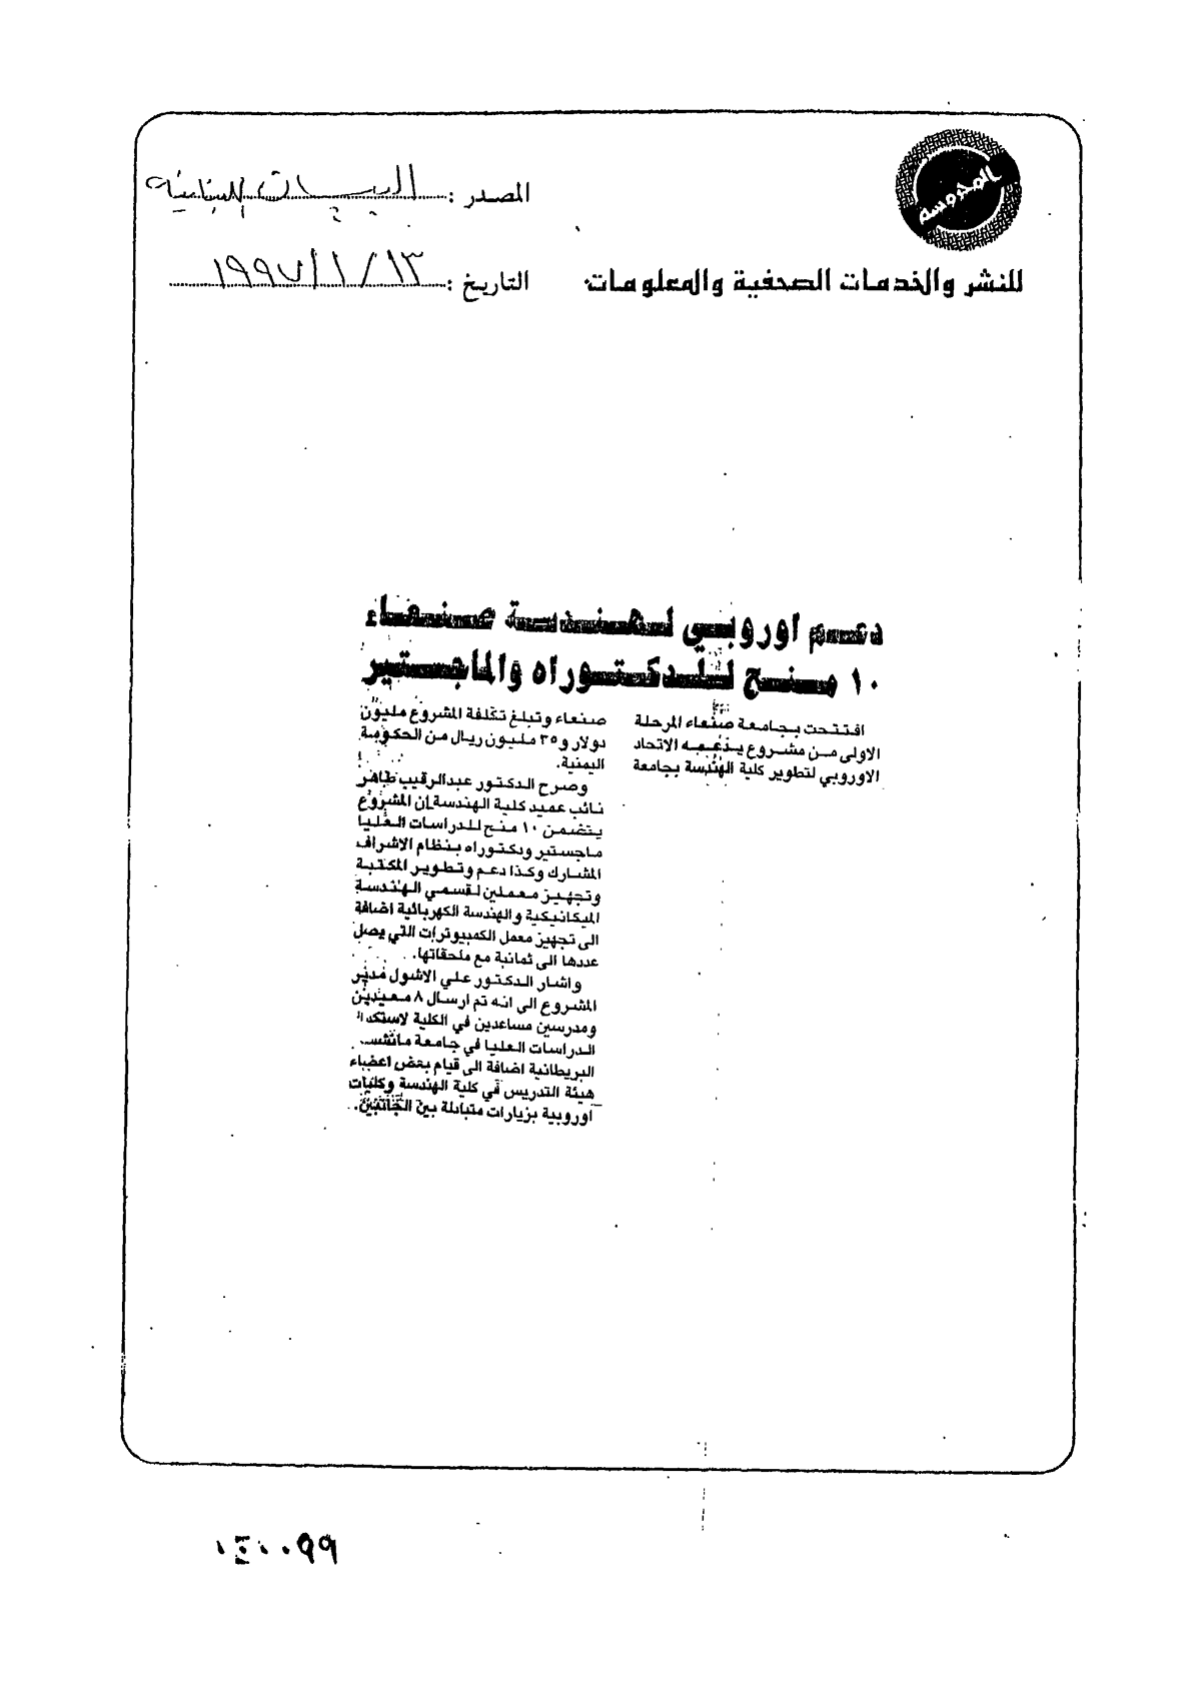 المحروسة
للنشر والخدمات الصحفية والمعلومات
المصدر :
التاريخ : ١٩٩٧/١/١٣
دعم اوروبي لهندسة صنعاء
١٠ منح للدكتوراه والماجستير
افتتحت بجامعة صنعاء المرحلة
الاولى من مشروع يدعمه الاتحاد
الاوروبي لتطوير كلية الهندسة بجامعة
صنعاء وتبلغ تكلفة المشروع مليون
دولار و٣٥ مليون ريال من الحكومة
اليمنية.
وصرح الدكتور عبدالرقيب طاهر
نائب عميد كلية الهندسة ان المشروع
يتضمن ١٠ منح للدراسات العليا
ماجستير ودكتوراه بنظام الاشراف
المشارك وكذا دعم وتطوير المكتبة
وتجهيز معملين لقسمي الهندسة
الميكانيكية والهندسة الكهربائية اضافة
الى تجهيز معمل الكمبيوترات التي يصل
عددها الى ثمانية مع ملحقاتها.
واشار الدكتور علي الاشول مدير
المشروع الى انه تم ارسال ٨ معيدين
ومدرسين مساعدين في الكلية
الدراسات العليا في جامعة
البريطانية اضافة الى قيام بعض اعضاء
هيئة التدريس في كلية الهندسة وكليات
اوروبية بزيارات متبادلة بين الجانبين.